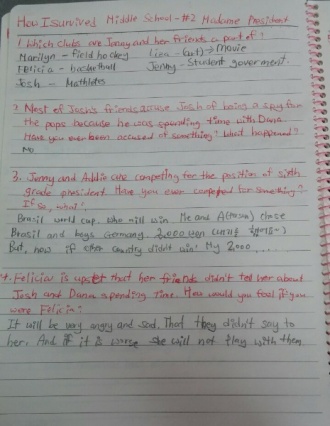 How I survived Middle School - #2 Madame President
1. Which clubs are Jenny and her friends a part of?
Marilyn - field hockey
Felicia - basketball Jenny - Student government.
Josh - Mathletes
2. Most of Josh's friends accuse Josh of being a spy for
the pops because he was spending time with Dana.
Have you ever been accused of something? What happened?
No
3. Jenny and Addie are competing for the position of sixth
grade president. Have you ever competed for something?
If so, what?
Brasil world cup. who will win Me and chose
Brasil and boys Germany. 2,000 won
But, how if other country didn't win! My 2,000.....
4. Felicia is upset that her friends didn't tell her about
Josh and Dana spending time. How would you feel if you
were Felicia?
It will be very angry and sad. That they didn't say to
her. And if it is worse she will not play with them.